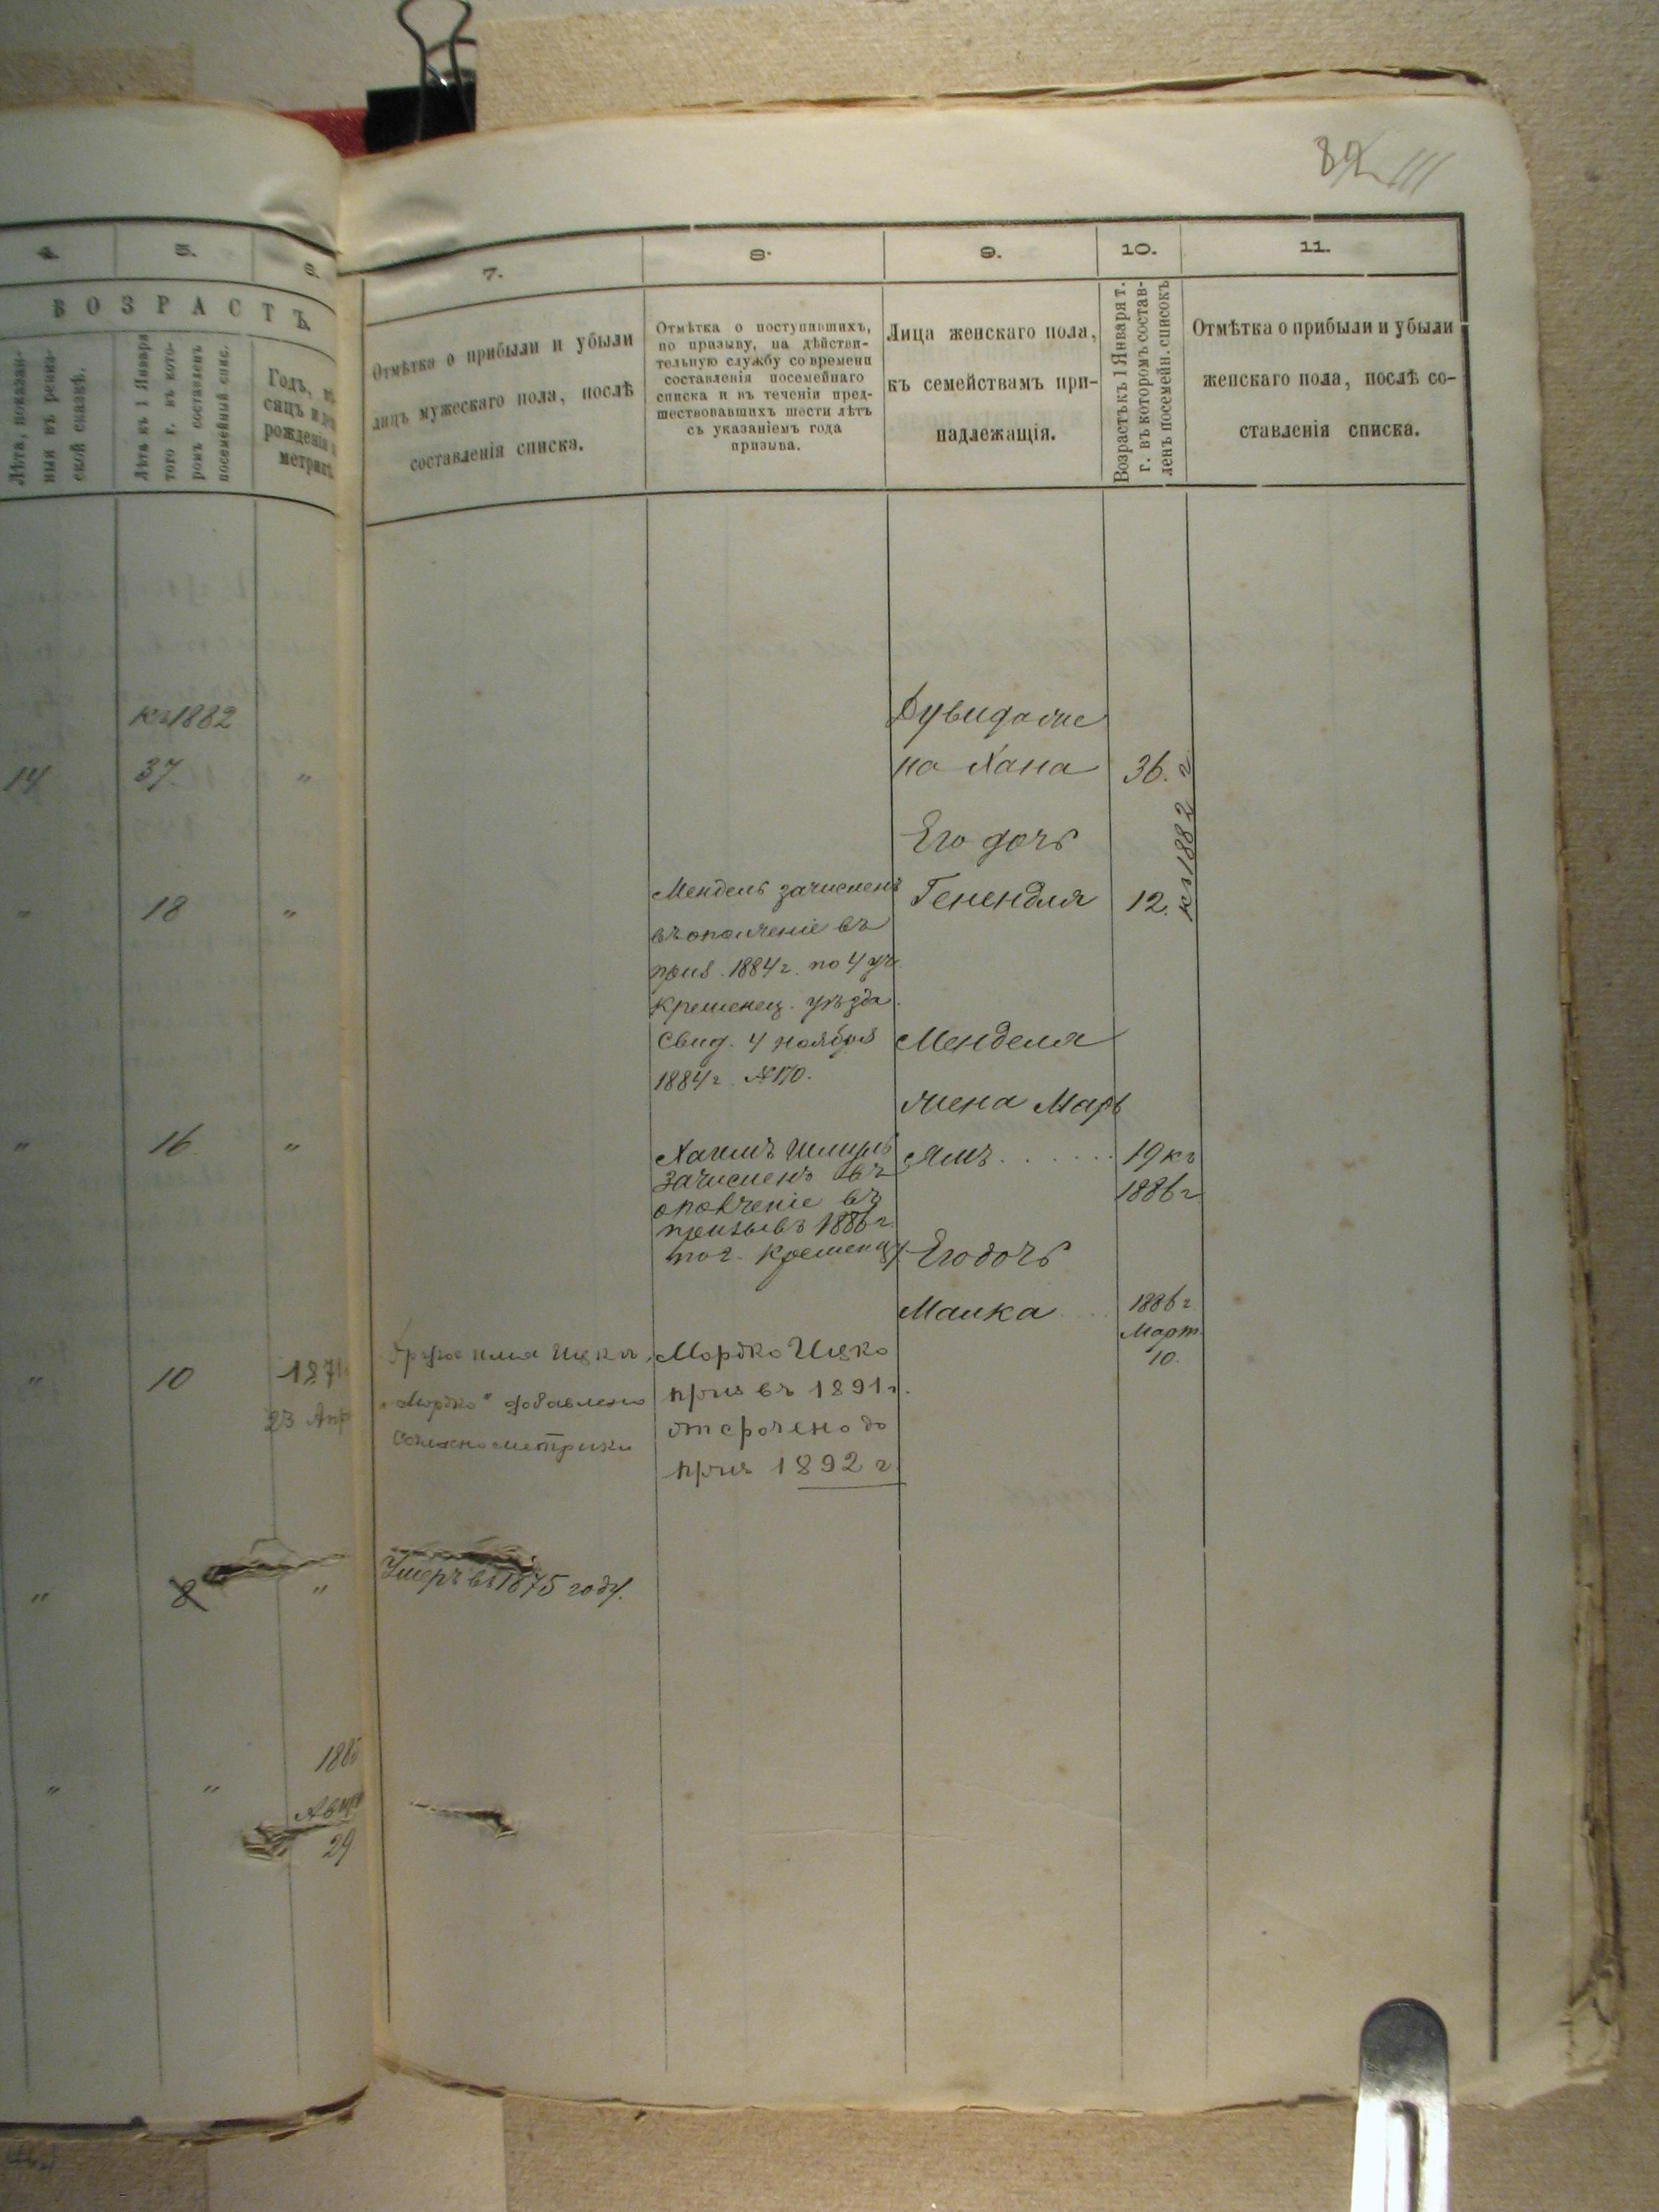 82
4.
5.
6.
ВОЗРАСТЪ.
Лѣта, показан-
ныя въ ревиз-
ской сказкѣ.
Лѣта къ 1 Января
того г. въ кото-
ромъ составленъ
посемейный спис.
Годъ, мѣ
сяцъ и де
рожденія
метрик
7.
8.
9.
10.
11.
Отмѣтка о прибыли и убыли
лицъ мужескаго пола, послѣ
составленія списка.
Отмѣтка о поступившихъ,
по призыву, на дѣйстви-
тельную службу со времени
составленія посемейнаго
списка и въ теченіи пред-
шествовавшихъ шести лѣтъ
съ указаніемъ года
призыва.
Лица женскаго пола,
къ семействамъ при-
надлежащія.
Возрастъ къ 1 Января т.
г. въ которомъ состав-
ленъ посемейн. списокъ
Отмѣтка о прибыли и убыли
женскаго пола, послѣ со-
ставленія списка.
къ 1882
14
37.
"
Дувида же
на Хана
36.
къ 1882 г
Его дочь
Генендля
12.
"
18
"
Мендель зачисленъ
въ ополченіе въ
приз. 1884 г. по 4 уч.
Кременец. уѣзда.
Свид. 4 ноября
1884 г. №170.
Менделя
жена Марь
ямъ
19 къ
1886 г
"
16
"
Хаимъ Шлиома
зачисленъ въ
ополченіе въ
призывъ 1886 г.
по г. Кременцу
Его дочь
Малка
1886 г.
Март.
10.
"
10
187
23 Апр
Другое имя Ицка,
"Мордко" добавлено
согласно метрики
Мордко Ицко
приз въ 1891 г.
отсрочено до
приз 1892 г.
"
8
"
Умеръ въ 1875 году.
"
"
188
Авгу
29